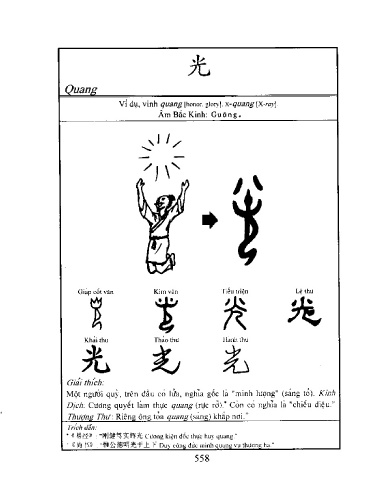 光
Quang
Ví dụ, vinh quang [honor, glory], x-quang [X-ray]
Âm Bắc Kinh: Guāng.
Giáp cốt văn Kim văn Tiểu triện Lệ thư
Khải thư Thảo thư Hành thư
光
Giải thích:
Một người quỳ, trên đầu có lửa, nghĩa gốc là "minh lượng" (sáng tỏ). Kinh
Dịch: Cương quyết làm thực quang (rực rỡ)." Còn có nghĩa là "chiếu diệu."
Thượng Thư: Riêng ông tỏa quang (sáng) khắp nơi."
Trích dẫn:
刚健笃实辉光 Cương kiện đốc thực huy quang."
惟公德明光于上下 Duy công đức minh quang vu thượng hạ."
558